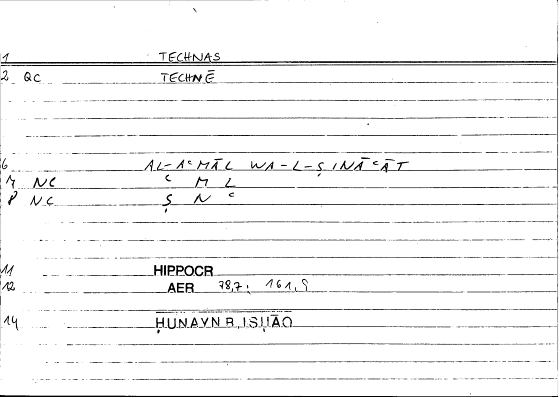 1 TECHNAS
2 QC TECHNĒ
6 AL-AᶜMĀL WA-L-ṢINĀᶜĀT
M NC ᶜ M L
P NC Ṣ N ᶜ
11 HIPPOCR
12 AER 78,7; 161,9
14 ḤUNAYN B. ISḤĀQ